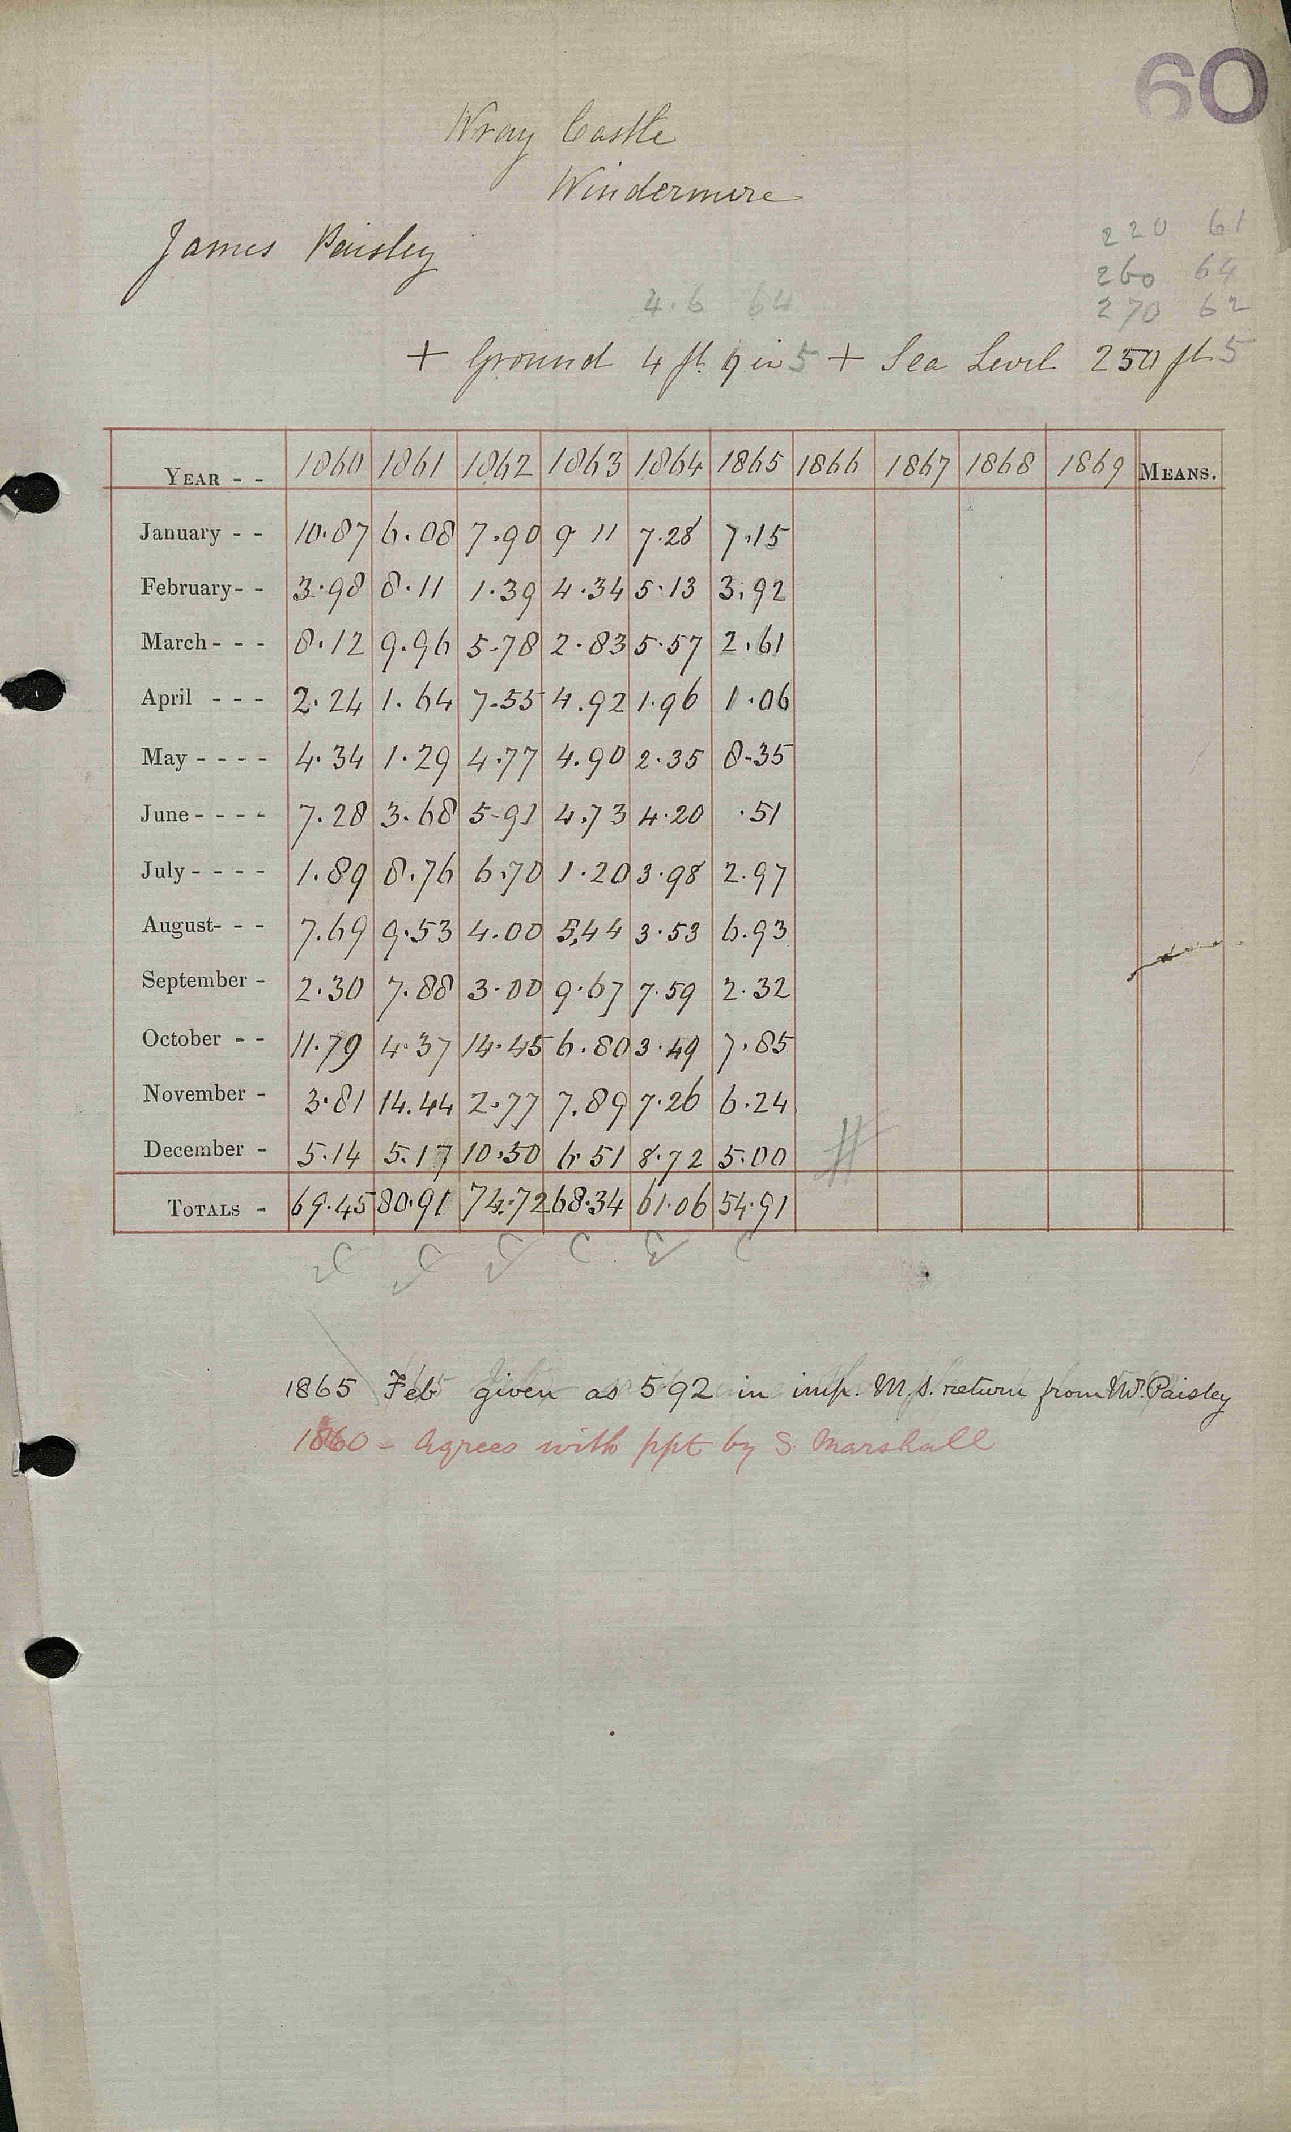 60
Wray Castle
Windermere
James Paisley
220 61
260 64
270 62
4.6 64
+ Ground 4 ft 9 in 5 + Sea Level 250 ft 5
YEAR - - 1860 1861 1862 1863 1864 1865 1866 1867 1868 1869 MEANS.
January - - 10.87 6.08 7.90 9 11 7.28 7.15
February - - 3.98 8.11 1.39 4.34 5.13 3.92
March - - - 8.12 9.96 5.78 2.83 5.57 2.61
April - - - 2.24 1.64 7.55 4.92 1.96 1.06
May - - - - 4.34 1.29 4.77 4.90 2.35 8.35
June - - - - 7.28 3.68 5.91 4.73 4.20 .51
July - - - - 1.89 8.76 6.70 1.20 3.98 2.97
August - - - 7.69 9.53 4.00 5.44 3.53 6.93
September - 2.30 7.88 3.00 9.67 7.59 2.32
October - - 11.79 4.37 14.45 6.80 3.49 7.85
November - 3.81 14.44 2.77 7.89 7.26 6.24
December - 5.14 5.17 10.50 6.51 8.72 5.00
TOTALS - 69.45 80.91 74.72 68.34 61.06 54.91
C C C C C C
1865 Feb given as 5.92 in imp. M.S. return from Mr. Paisley
1860 - Agrees with ppt by S. Marshall